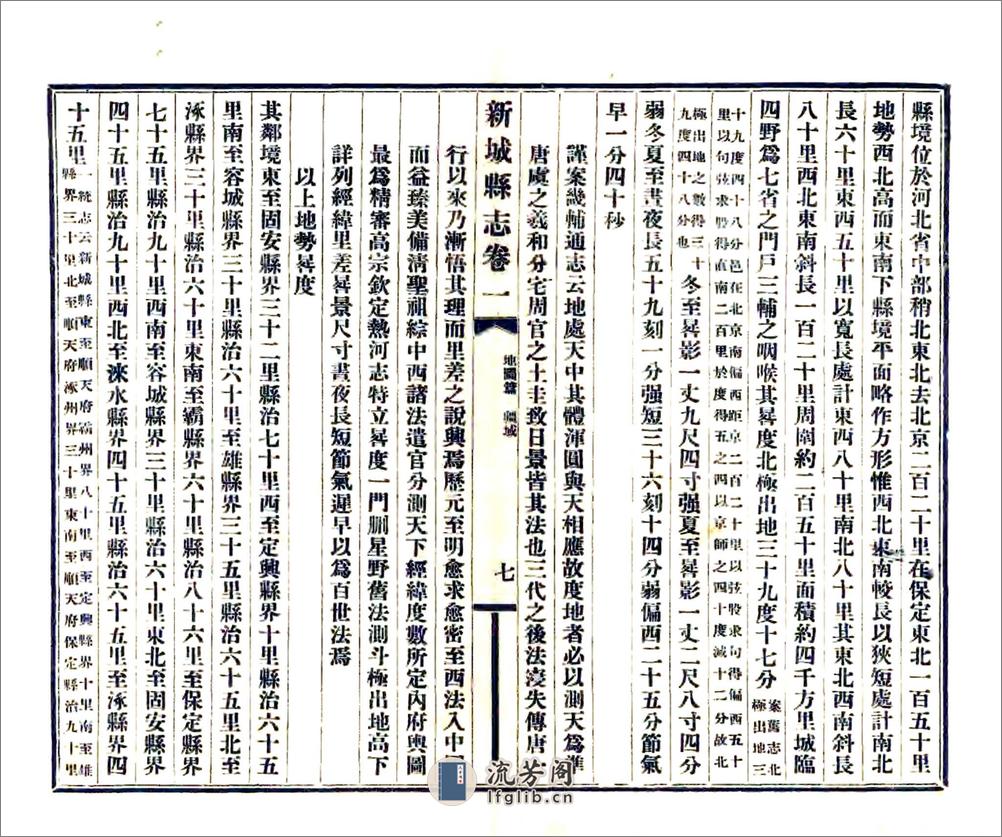 縣境位於河北省中部稍北東北去北京二百二十里在保定東北一百五十里
地勢西北高而東南下縣境平面略作方形惟西北東南較長以狹短處計南北
長六十里東西五十里以寬長處計東西八十里南北八十里其東北西南斜長
八十里西北東南斜長一百二十里周圍約二百五十里面積約四千方里城臨
四野爲七省之門戶三輔之咽喉其晷度北極出地三十九度十七分案舊志北極出地三
十九度四十八分邑在北京南偏西距京二百二十里以弦股求句得偏西五十
里以句弦求股得直南二百里於度得五之四以京師之四十度減十二分故北
極出地之數得三十九度四十八分也冬至晷影一丈九尺四寸强夏至晷影一丈二尺八寸四分
弱冬夏至晝夜長五十九刻一分强短三十六刻十四分弱偏西二十五分節氣
早一分四十秒
謹案畿輔通志云地處天中其體渾圓與天相應故度地者必以測天爲準
唐虞之羲和分宅周官之土圭致日景皆其法也三代之後法寖失傳唐一
行以來乃漸悟其理而里差之說興焉歷元至明愈求愈密至西法入中
新城縣志卷一
地圖篇 疆域
七
而益臻美備清聖祖綜中西諸法遣官分測天下經緯度數所定內府輿圖
最爲精審高宗欽定熱河志特立晷度一門刪星野舊法測斗極出地高下
詳列經緯里差晷景尺寸晝夜長短節氣遲早以爲百世法焉
以上地勢晷度
其鄰境東至固安縣界三十二里縣治七十里西至定興縣界十里縣治六十五
里南至容城縣界三十里縣治六十里至雄縣界三十五里縣治六十五里北至
涿縣界三十里縣治六十里東南至霸縣界六十里縣治八十六里至保定縣界
七十五里縣治九十里西南至容城縣界三十里縣治六十里東北至固安縣界
四十五里縣治九十里西北至淶水縣界四十五里縣治六十五里至涿縣界四
十五里一統志云新城縣東至順天府霸州界八十里西至定興縣界十里南至雄
縣界三十里北至順天府涿州界三十里東南至順天府保定縣治九十里
流芳阁
lfglib.cn